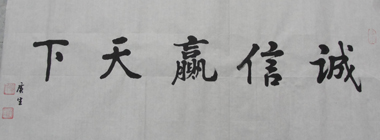 诚信赢天下
广生